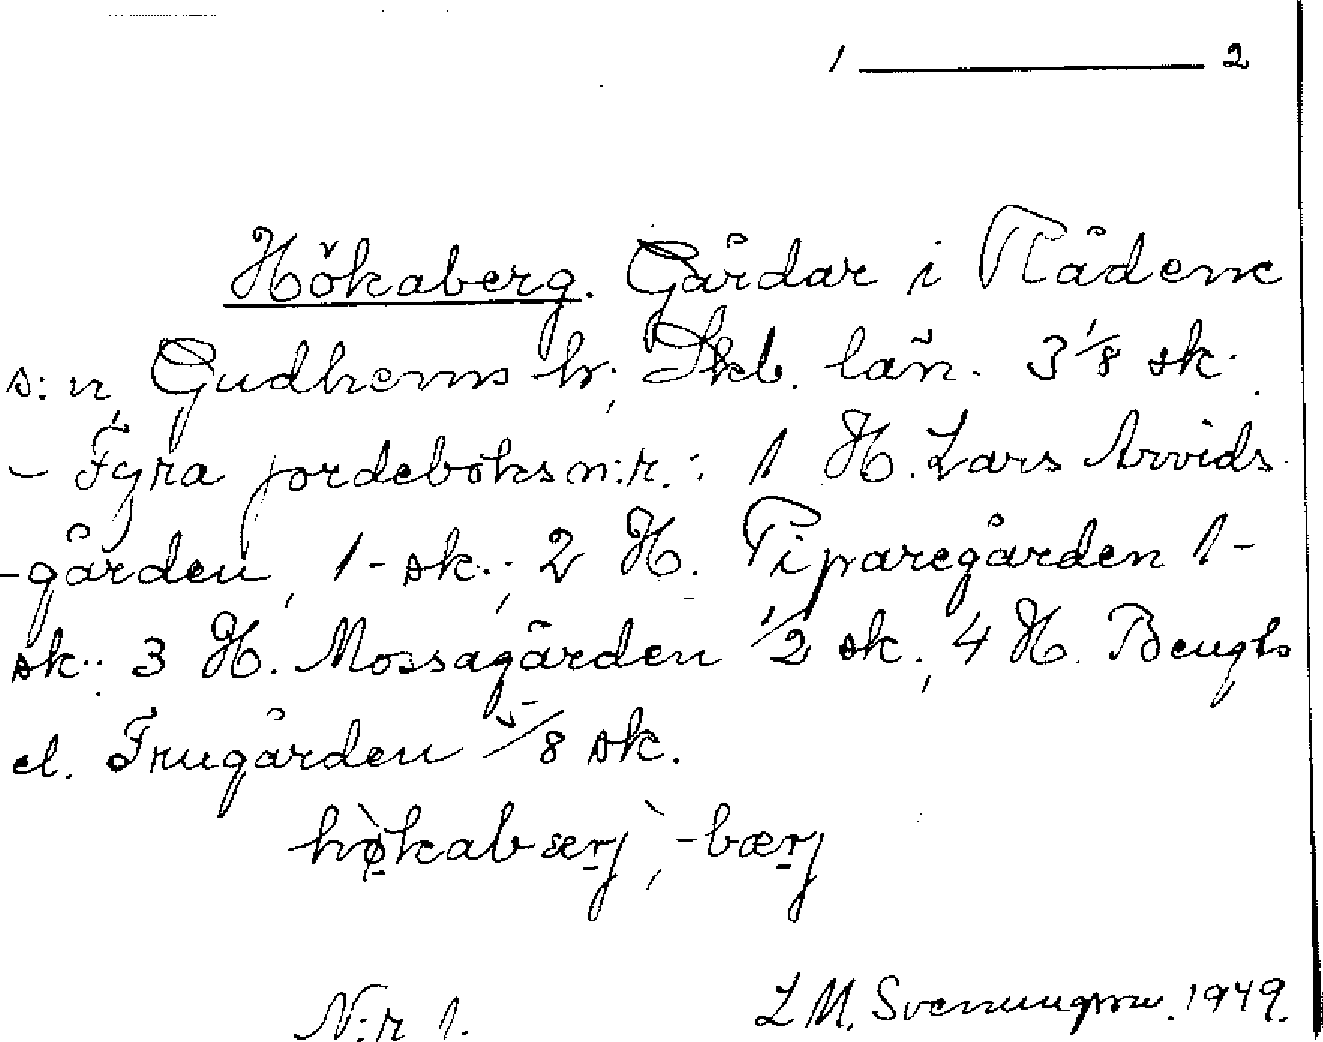 1 — 2
Hökaberg. Gårdar i Flådene
s:n, Gudhems hr; Skb. län. 3 1/8 sk.
- Fyra jordeboksn:r.: 1 H. Lars Arvids
-gården, 1 - sk.; 2 H. Piparegården 1 -
sk.; 3 H. Mossagården 1/2 sk., 4 H. Bengts
el. Frugården 5/8 sk.
hø̀kabærj, -bærj
N:r 1.
L M. Svenungsson. 1949.